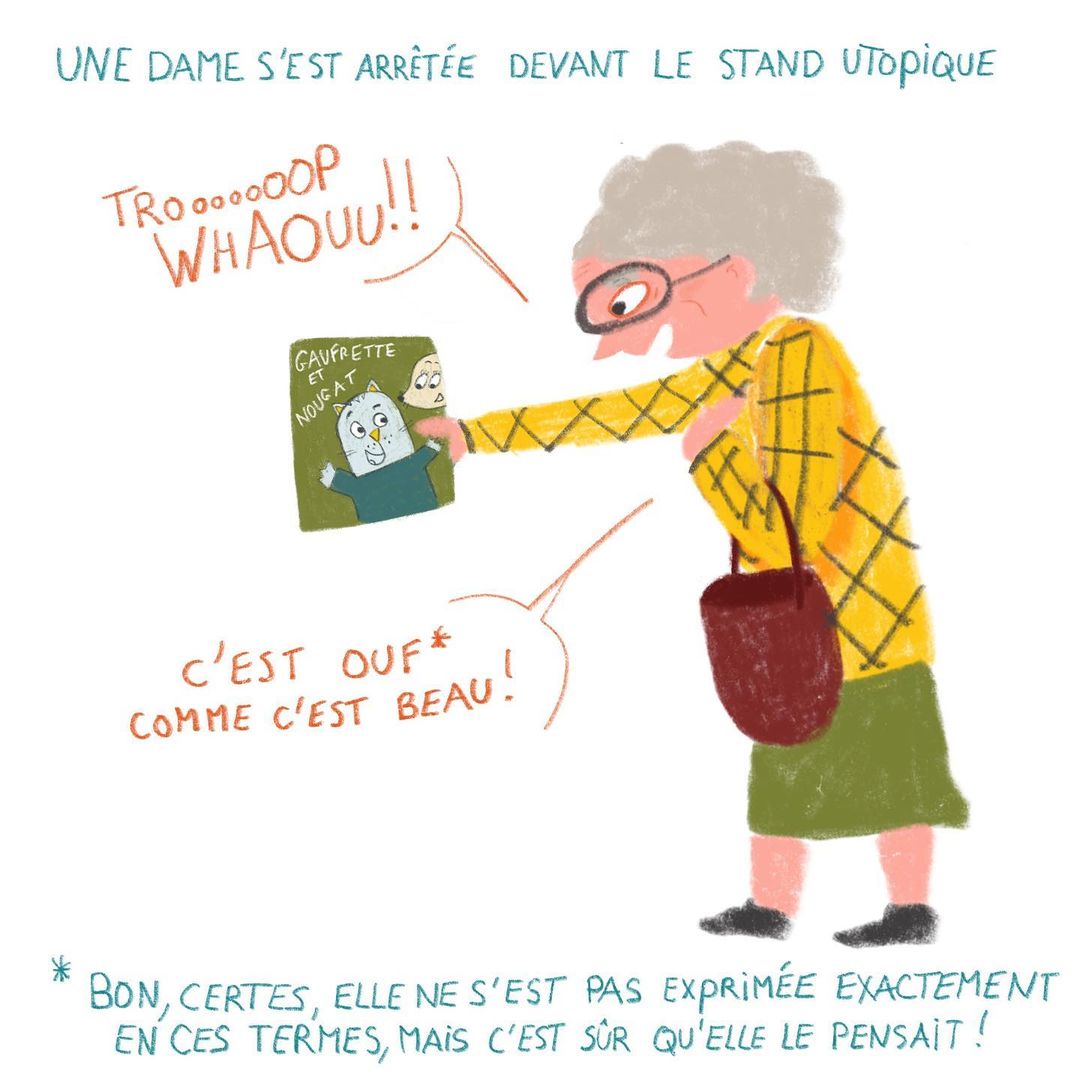 UNE DAME S'EST ARRÊTÉE DEVANT LE STAND UTOPIQUE
TROOOOOOOP
WHAOUU!!
GAUFRETTE
ET
NOUGAT
C'EST OUF*
COMME C'EST BEAU!
* BON, CERTES, ELLE NE S'EST PAS EXPRIMÉE EXACTEMENT
EN CES TERMES, MAIS C'EST SÛR QU'ELLE LE PENSAIT!